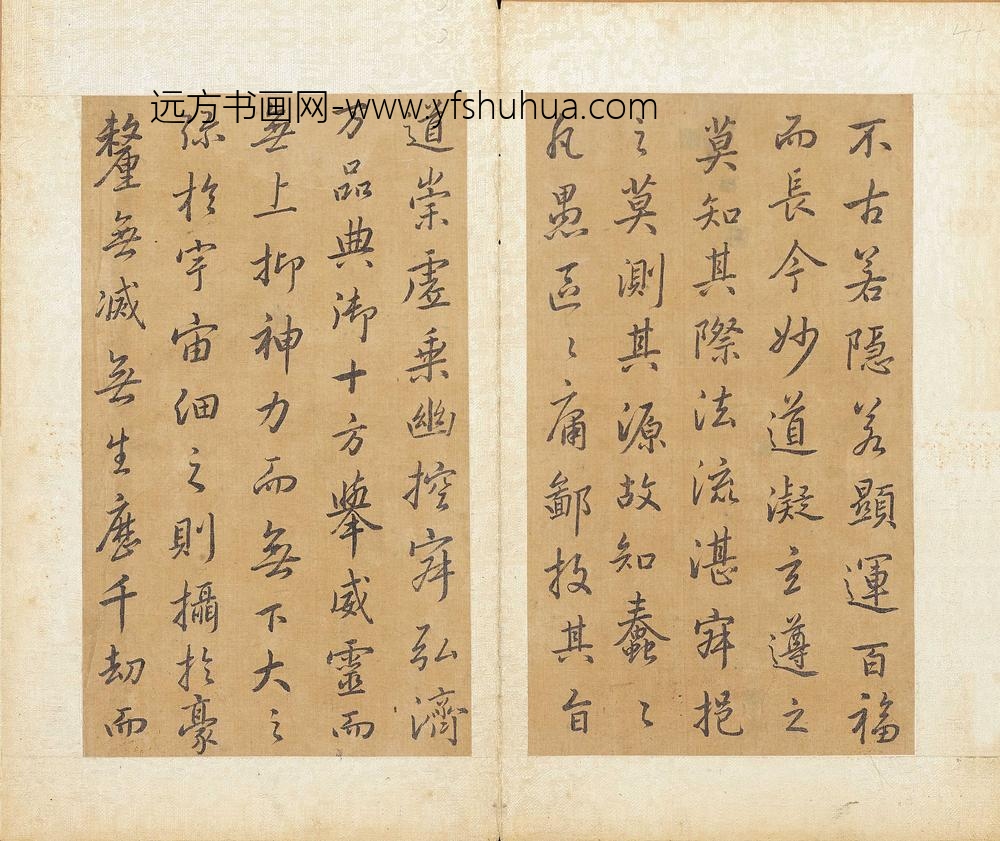 远方书画网-www.yfshuhua.com
道崇虛乘幽控寂弘濟
万品典御十方舉威靈而
無上抑神力而無下大之
弥於宇宙細之則攝於豪
釐無滅無生歷千劫而
不古若隱若顯運百福
而長今妙道凝玄遵之
莫知其際法流湛寂挹
之莫測其源故知蠢々
凡愚區々庸鄙投其旨